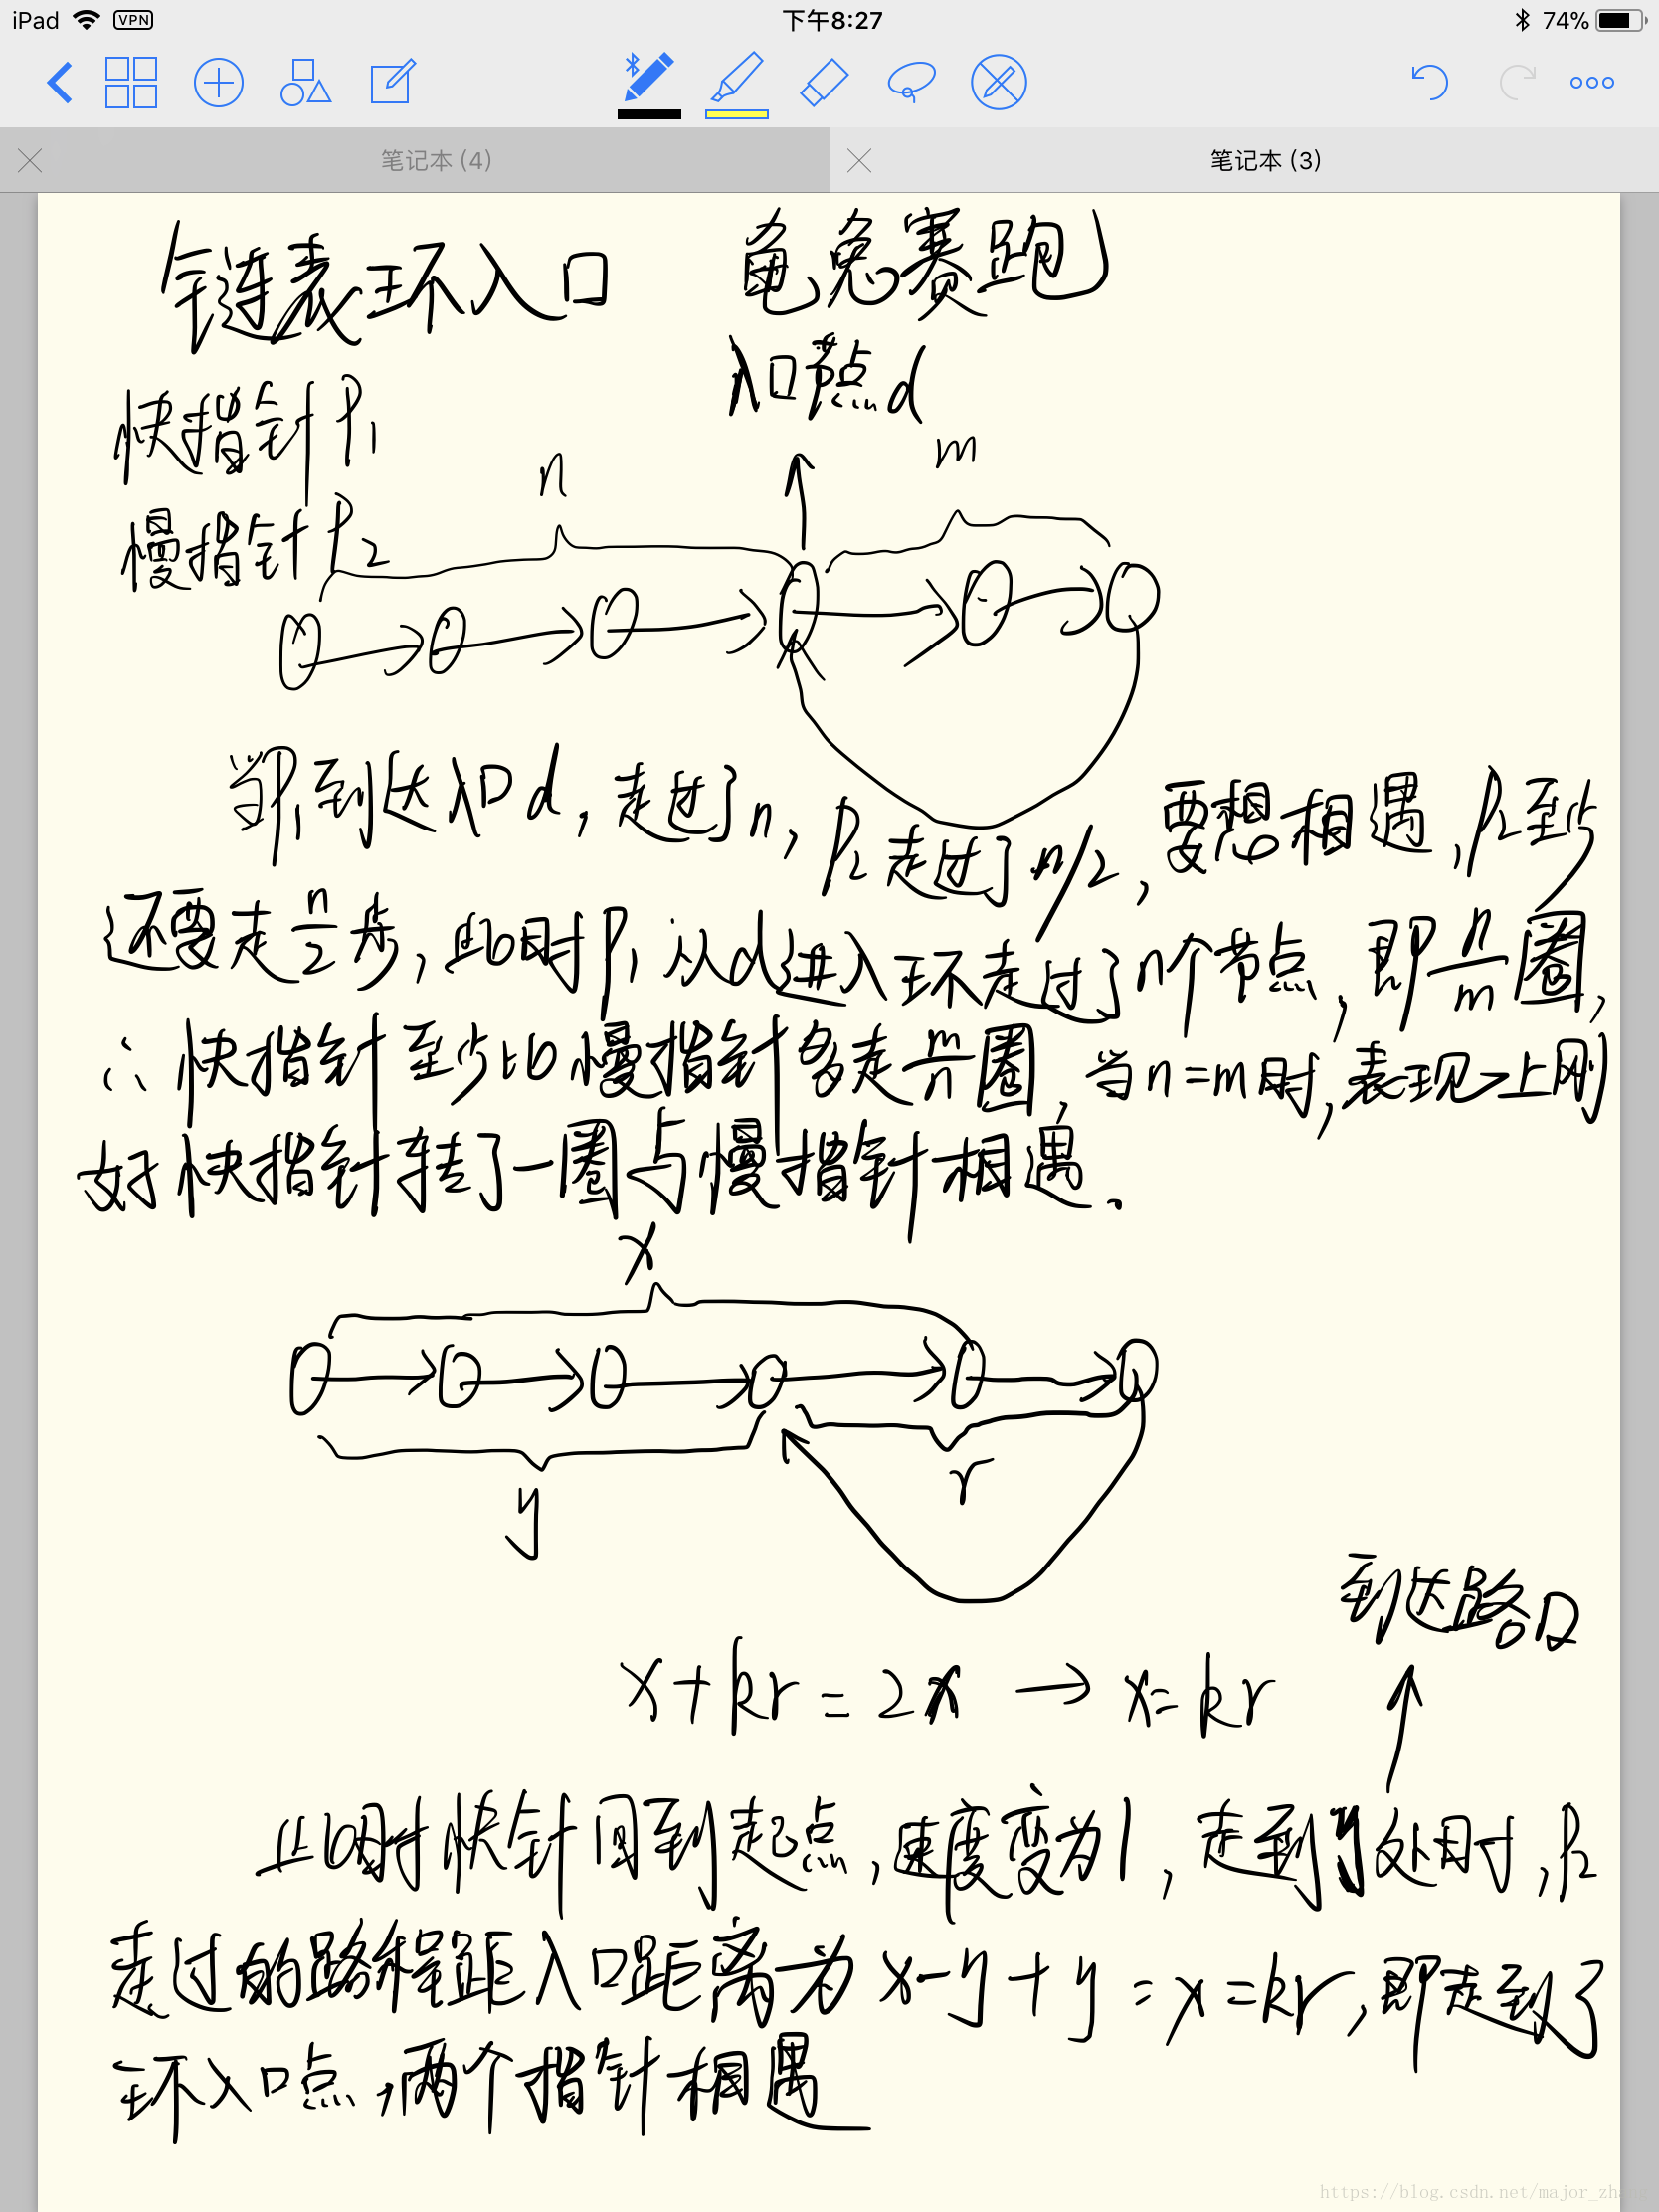 iPad VPN 下午8:27 74%
笔记本 (4) 笔记本 (3)
链表环入口 龟兔赛跑
入口节点d
快指针P1
n m
慢指针P2
当P1到达入口d,走过了n,P2走过了n/2,要想相遇,P2至少
还要走n/2步,此时P1从d进入环走过了n个节点,即n/m圈,
∴快指针至少比慢指针多走m/n圈,当n=m时,表现上刚
好快指针转了一圈与慢指针相遇.
x
y r
到达路口
x+kr=2x → x=kr
此时快针回到起点,速度变为1,走到y处用时,P2
走过的路程距入口距离为x-y+y=x=kr,即走到了
环入口点,两个指针相遇